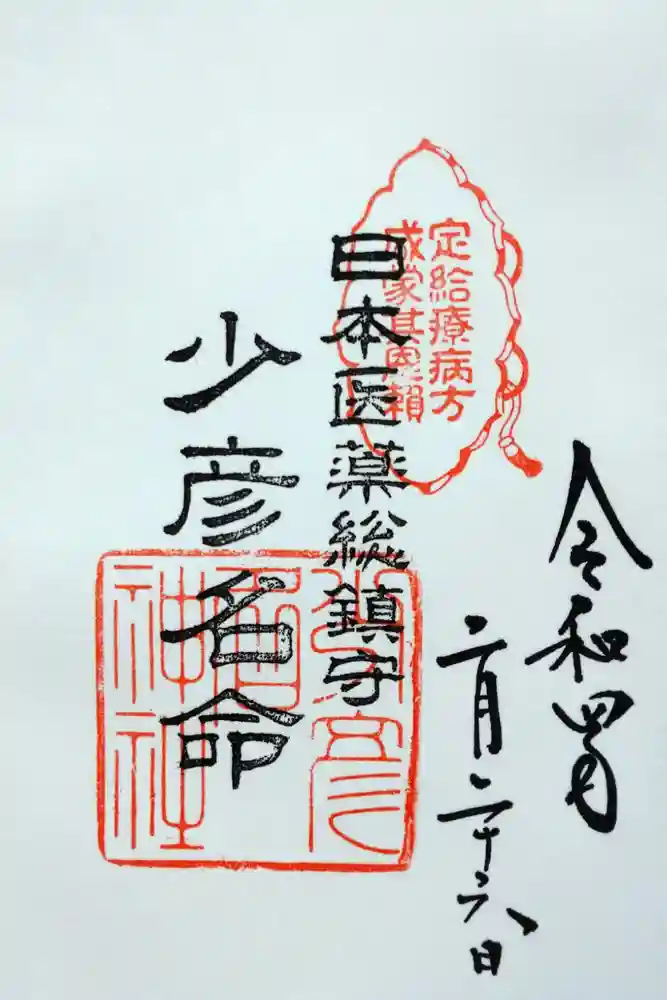 令和四年
二月二十六日
定給療病方
咸蒙其恩賴
日本医薬総鎮守
少彦名命
少彦
名
神社